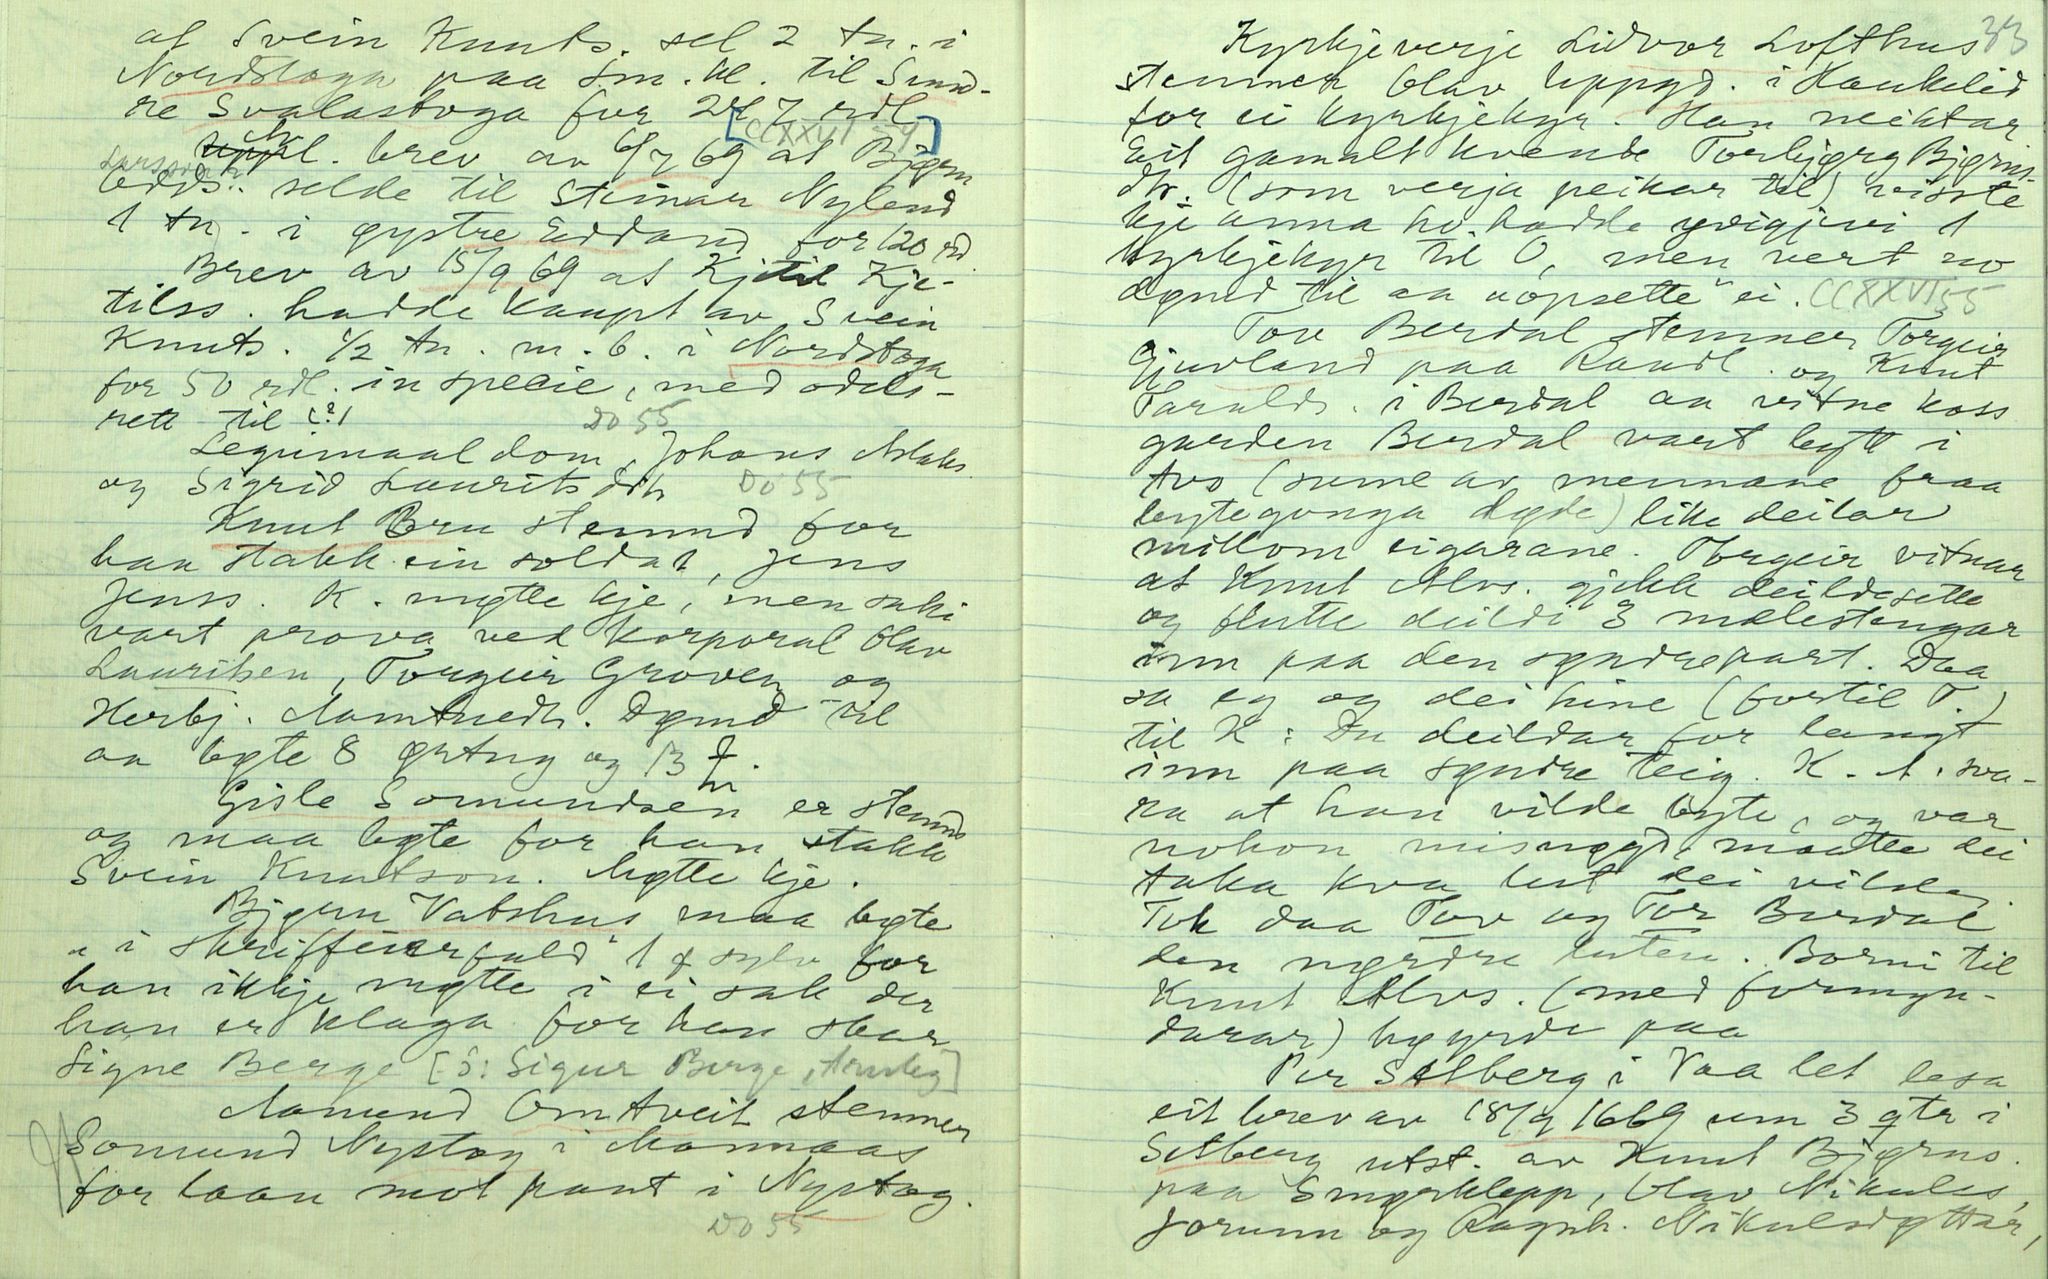 at Svein Knuts. sel 2 tn. i
Nordstoga paa Sm. kl. til Sund-
re Svalastoga for 27 rdl
[CCXXVI 54]
l. brev av 6/7 69 at Bjørn
Larsson
selde til Steinar Nylend
1 tn. i øystre Eddand for 120 rd.
Brev av 15/9 69 at Kjetil Kje-
tilss. hadde kaupt av Svein
Knuts. 1/2 tn. m. b. i Nordstoga
for 50 rdl. in specie, med odels-
rett til (?)
DO 55
Legermaal dom, Johans Aslaks
og Sigrid Laurits dtr DO 55
Knut Bru stemnd for
han stakk ein soldat, Jens
Jenss. K. møtte kje, men saki
vart prova ved korporal Olav
Lauritsen, Torgeir Groven og
Herbj. Aamundsdtr. Dømd til
aa bøte 8 ørtug og 13 mk.
Gisle Somundsen er stemnd
og maa bøte for han stakk
Svein Knutson. Møtte kje.
Bjørn Vatshus maa bøte
„i skrifteierfald" 1 mk sylv for
han ikkje møtte i ei sak der
han er klaga for han skar
Signe Berge [ɔ: Sigur Berge, Arabyg]
Aamund Omtveit stemner
Somund Nystog i Mannaas
for laan mot pant i Nystog.
DO 55
33
Kyrkjeverje Lidvor Lofthus
stemner Olav Uppgd. i Haukelid
for ei kyrkjekyr. Han neiktar
Eit gamalt kvende Torbjørg Bjørns-
dtr. (som verja peikar til) visste
kje anna ho hadde yvigjevi 1
kyrkjekyr til O, men vert no
dømd til aa „opsette" ei. CCXXVI 55
Tov Berdal stemner Torgeir
Gjuvland paa Raudl. og Knut
Taralds. i Berdal aa vitne koss
garden Berdal vart bytt i
tvo (sume av mennane fraa
bytegonga døde) like deilar
millom eigarane. Torgeir vitnar
at Knut Alvs. gjekk deildesette
og flutte deildi 3 mælestengar
inn paa den syndre part. Daa
sa eg og dei hine (fortil T.)
til K: Du deildar for langt
inn paa syndre teig. K. A. sva-
ra at han vilde byte, og var
nokon misnøgd, maatte dei
taka kva lut dei vilde.
Tok daa Tov og Tor Berdal
den nyrdre luten. Borni til
Knut Alvs. (med formyn-
darar) høyrde paa
Per Selberg i Vaa let lesa
eit brev av 18/9 1669 um 3 qtr i
Selberg utst. av Knut Bjørns.
paa Smørklepp, Olav Nikuls,
Jorunn og Ragnh. Nikulsdøttar,